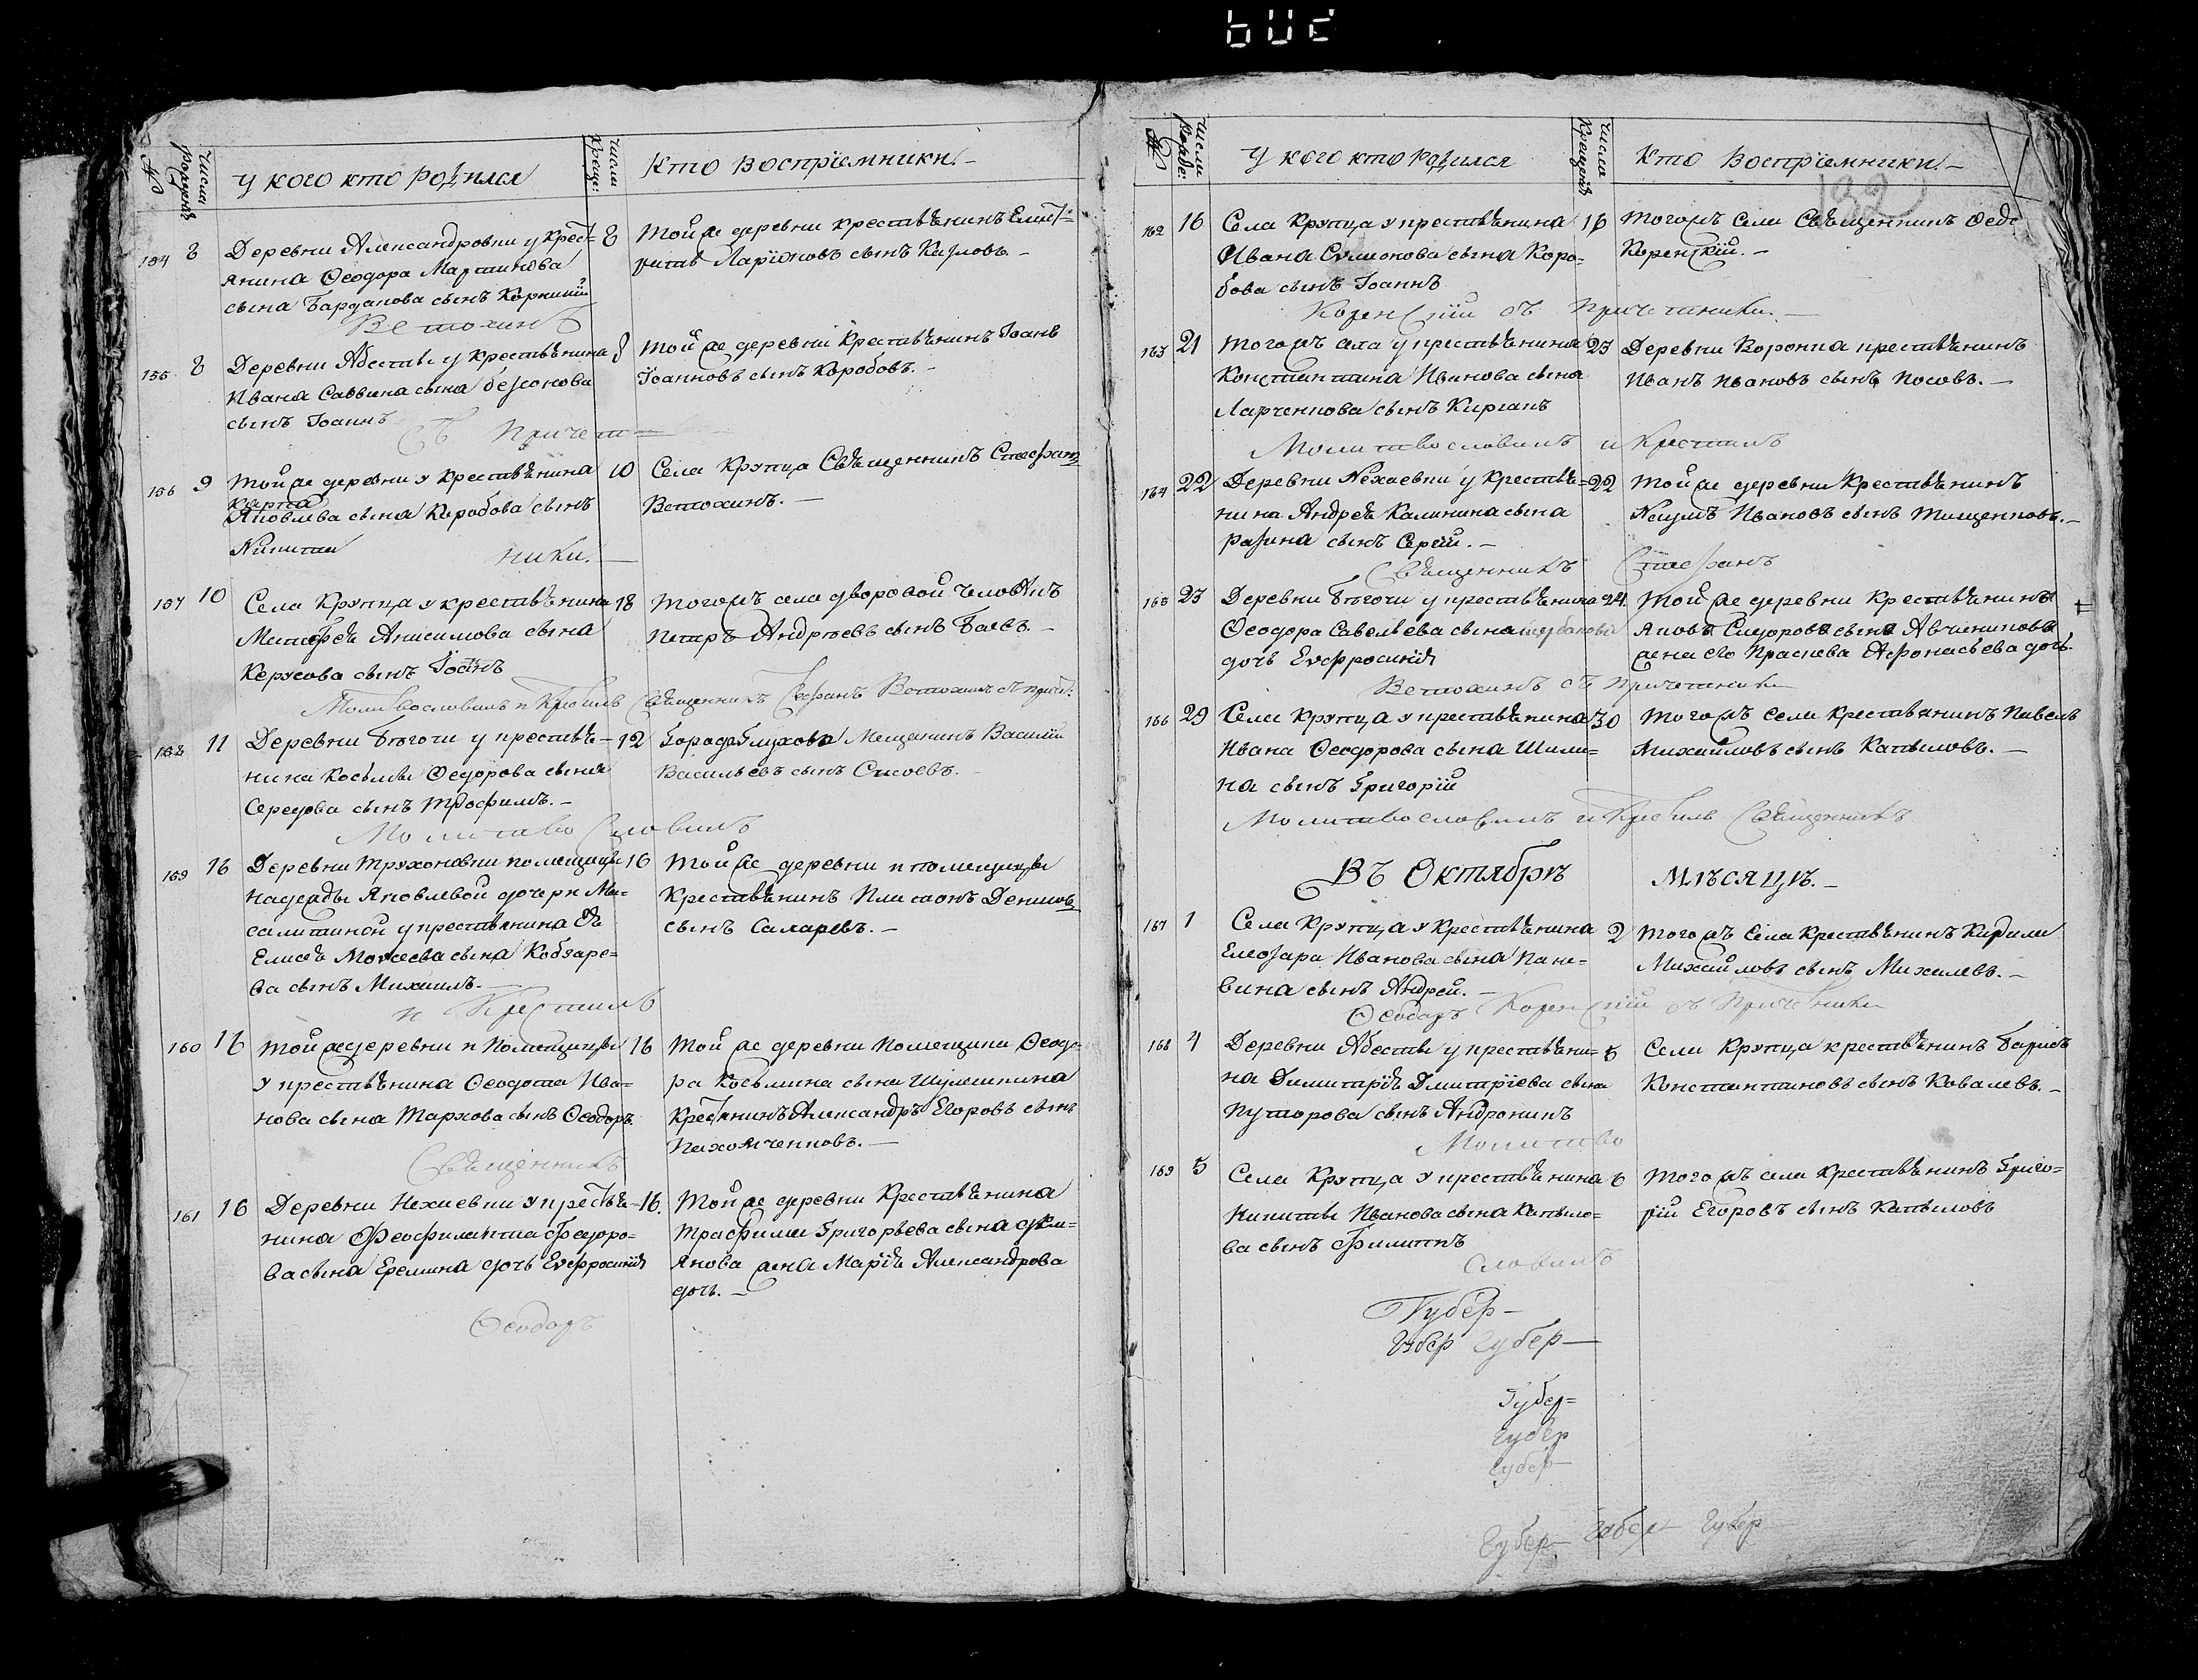 №
Числа рожден:
У кого кто родился
Числа Креще:
Кто восприемники.
154 8 Деревни Александровки у крест=
янина Феодора Мартинова
сына Бардакова сынъ Корнилій
8 Той же деревни крестьянинъ
Ларіоновъ сынъ Козловъ. –
Ветохинъ
155 8 Деревни у крестьянина
Ивана Саввина сына
сынъ Іоаннъ
8 Той же деревни крестьянинъ Іоаннъ
Іоанновъ сынъ Коробовъ. –
Съ Причет=
156 9 Той же деревни у крестьянина
Карпа
Яковлева сына Коробова сынъ
Никита
10 Села Крупца Священникъ Стефанъ
Ветохинъ. –
ники. –
157 10 Села Крупца у крестьянина
Матфея Анисимова сына
сынъ Іоаннъ
18 Тогожъ села дворовой человѣкъ
Петръ Андреевъ сынъ Баевъ. –
Молитвословилъ и Крестилъ Священникъ Стефанъ Ветохинъ съ прич:
158 11 Деревни у крестьяни–
нина Косьмы Феодорова сына
Середова сынъ Трофимъ. –
12 Города Глухова Мещанинъ Василій
Васильевъ сынъ Сысоевъ. –
Молитво Словилъ
159 16 помещицы
Надежды Яковлевой дочери
у крестьянина
Елисея Моисеева сына Кобзаре=
ва сынъ Михаилъ. –
16 Той же деревни и помещицы
крестьянинъ Платонъ Денисовъ
сынъ –
и Крестилъ
160 16 Той же деревни и Помещицы
у крестьянина Феодота Ива=
нова сына Тархова сынъ Феодоръ
16 Той же деревни Помещика Феодо=
ра Косьмина сына
крестьянинъ Александръ Егоровъ сынъ
–
Священникъ
161 16 Деревни Нехаевки у крестья–
нина Феофилакта Федоро=
ва сына Еремина дочь Евфросинія
16. Той же деревни Крестьянина
Трофима Григорьева сына
янова жена Марія Александрова
дочь. –
Феодоръ
№
Числа Рожде:
У кого кто родился
Числа Крещенія
Кто Восприемники. –
162 16 Села Крупца у крестьянина
Ивана Симионова сына Коро=
бова сынъ Іоаннъ
16 Тогожъ Села Священникъ
Коренскій. –
Коренскій съ Причетники. –
163 21 Тогожъ села у крестьянина
Константина Иванова сына
Ларченкова сынъ
23 Деревни Воронка крестьянинъ
Иванъ Ивановъ сынъ Носовъ. –
Молитвословилъ и Крестилъ
164 22 Деревни Нехаевки у крестья=
нина Андрея Калинина сына
Разина сынъ Сергій. –
22 Той же деревни Крестьянинъ
Наумъ Ивановъ сынъ Тищенковъ. –
Священникъ Стефанъ
165 23 Деревни у крестьянина
Феодора Савельева сына Щербакова
дочь Евфросинія
24. Той же деревни крестьянина
Якова Сидорова сына
жена его Праскева Афонасьева дочь.
Ветохинъ съ причетники
166 29 Села Крупца у крестьянина
Ивана Феодорова сына Шили=
на сынъ Григорій
30 Тогожъ села крестьянинъ Павелъ
Михайловъ сынъ Катыловъ. –
Молитвословилъ и Крестилъ Священникъ
Въ Октябрѣ Мѣсяцѣ. –
167 1 Села Крупца у крестьянина
Елеозара Иванова сына
вина сынъ Андрей. –
2 Тогожъ Села крестьянинъ Кирила
Михайловъ сынъ Михалевъ. –
Феодоръ Коренскій съ Причетники
168 4 Деревни у крестьяни=
на Димитрія Дмитріева сына
сынъ Андроникъ
5 Села Крупца крестьянинъ Борисъ
Константиновъ сынъ Ковалевъ. –
Молитво
169 5 Села Крупца у крестьянина
Никиты Иванова сына Катыло=
ва сынъ Филиппъ
6 Тогожъ села крестьянинъ Григо=
рій Егоровъ сынъ Катыловъ
Словилъ
Губер–
Губер Губер–
Губер=
Губер
Губер–
Губер– Губер– Губер–